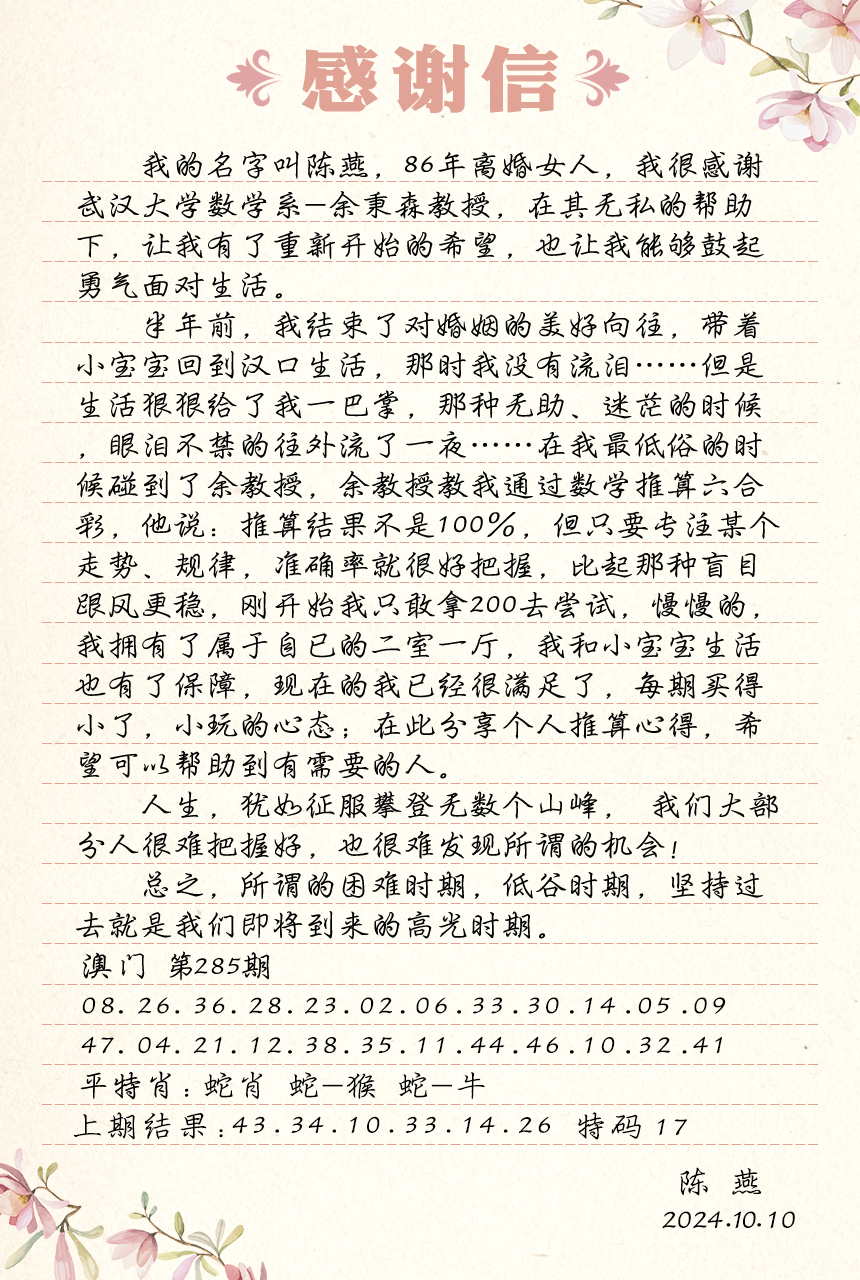 感谢信
我的名字叫陈燕，86年离婚女人，我很感谢
武汉大学数学系—余秉森教授，在其无私的帮助
下，让我有了重新开始的希望，也让我能够鼓起
勇气面对生活。
半年前，我结束了对婚姻的美好向往，带着
小宝宝回到汉口生活，那时我没有流泪……但是
生活狠狠给了我一巴掌，那种无助、迷茫的时候
，眼泪不禁的往外流了一夜……在我最低俗的时
候碰到了余教授，余教授教我通过数学推算六合
彩，他说：推算结果不是100%，但只要专注某个
走势、规律，准确率就很好把握，比起那种盲目
跟风更稳，刚开始我只敢拿200去尝试，慢慢的，
我拥有了属于自已的二室一厅，我和小宝宝生活
也有了保障，现在的我已经很满足了，每期买得
小了，小玩的心态；在此分享个人推算心得，希
望可以帮助到有需要的人。
人生，犹如征服攀登无数个山峰， 我们大部
分人很难把握好，也很难发现所谓的机会！
总之，所谓的困难时期，低谷时期，坚持过
去就是我们即将到来的高光时期。
澳门 第285期
08.26.36.28.23.02.06.33.30.14.05.09
47.04.21.12.38.35.11.44.46.10.32.41
平特肖：蛇肖 蛇—猴 蛇—牛
上期结果：43.34.10.33.14.26 特码 17
陈 燕
2024.10.10